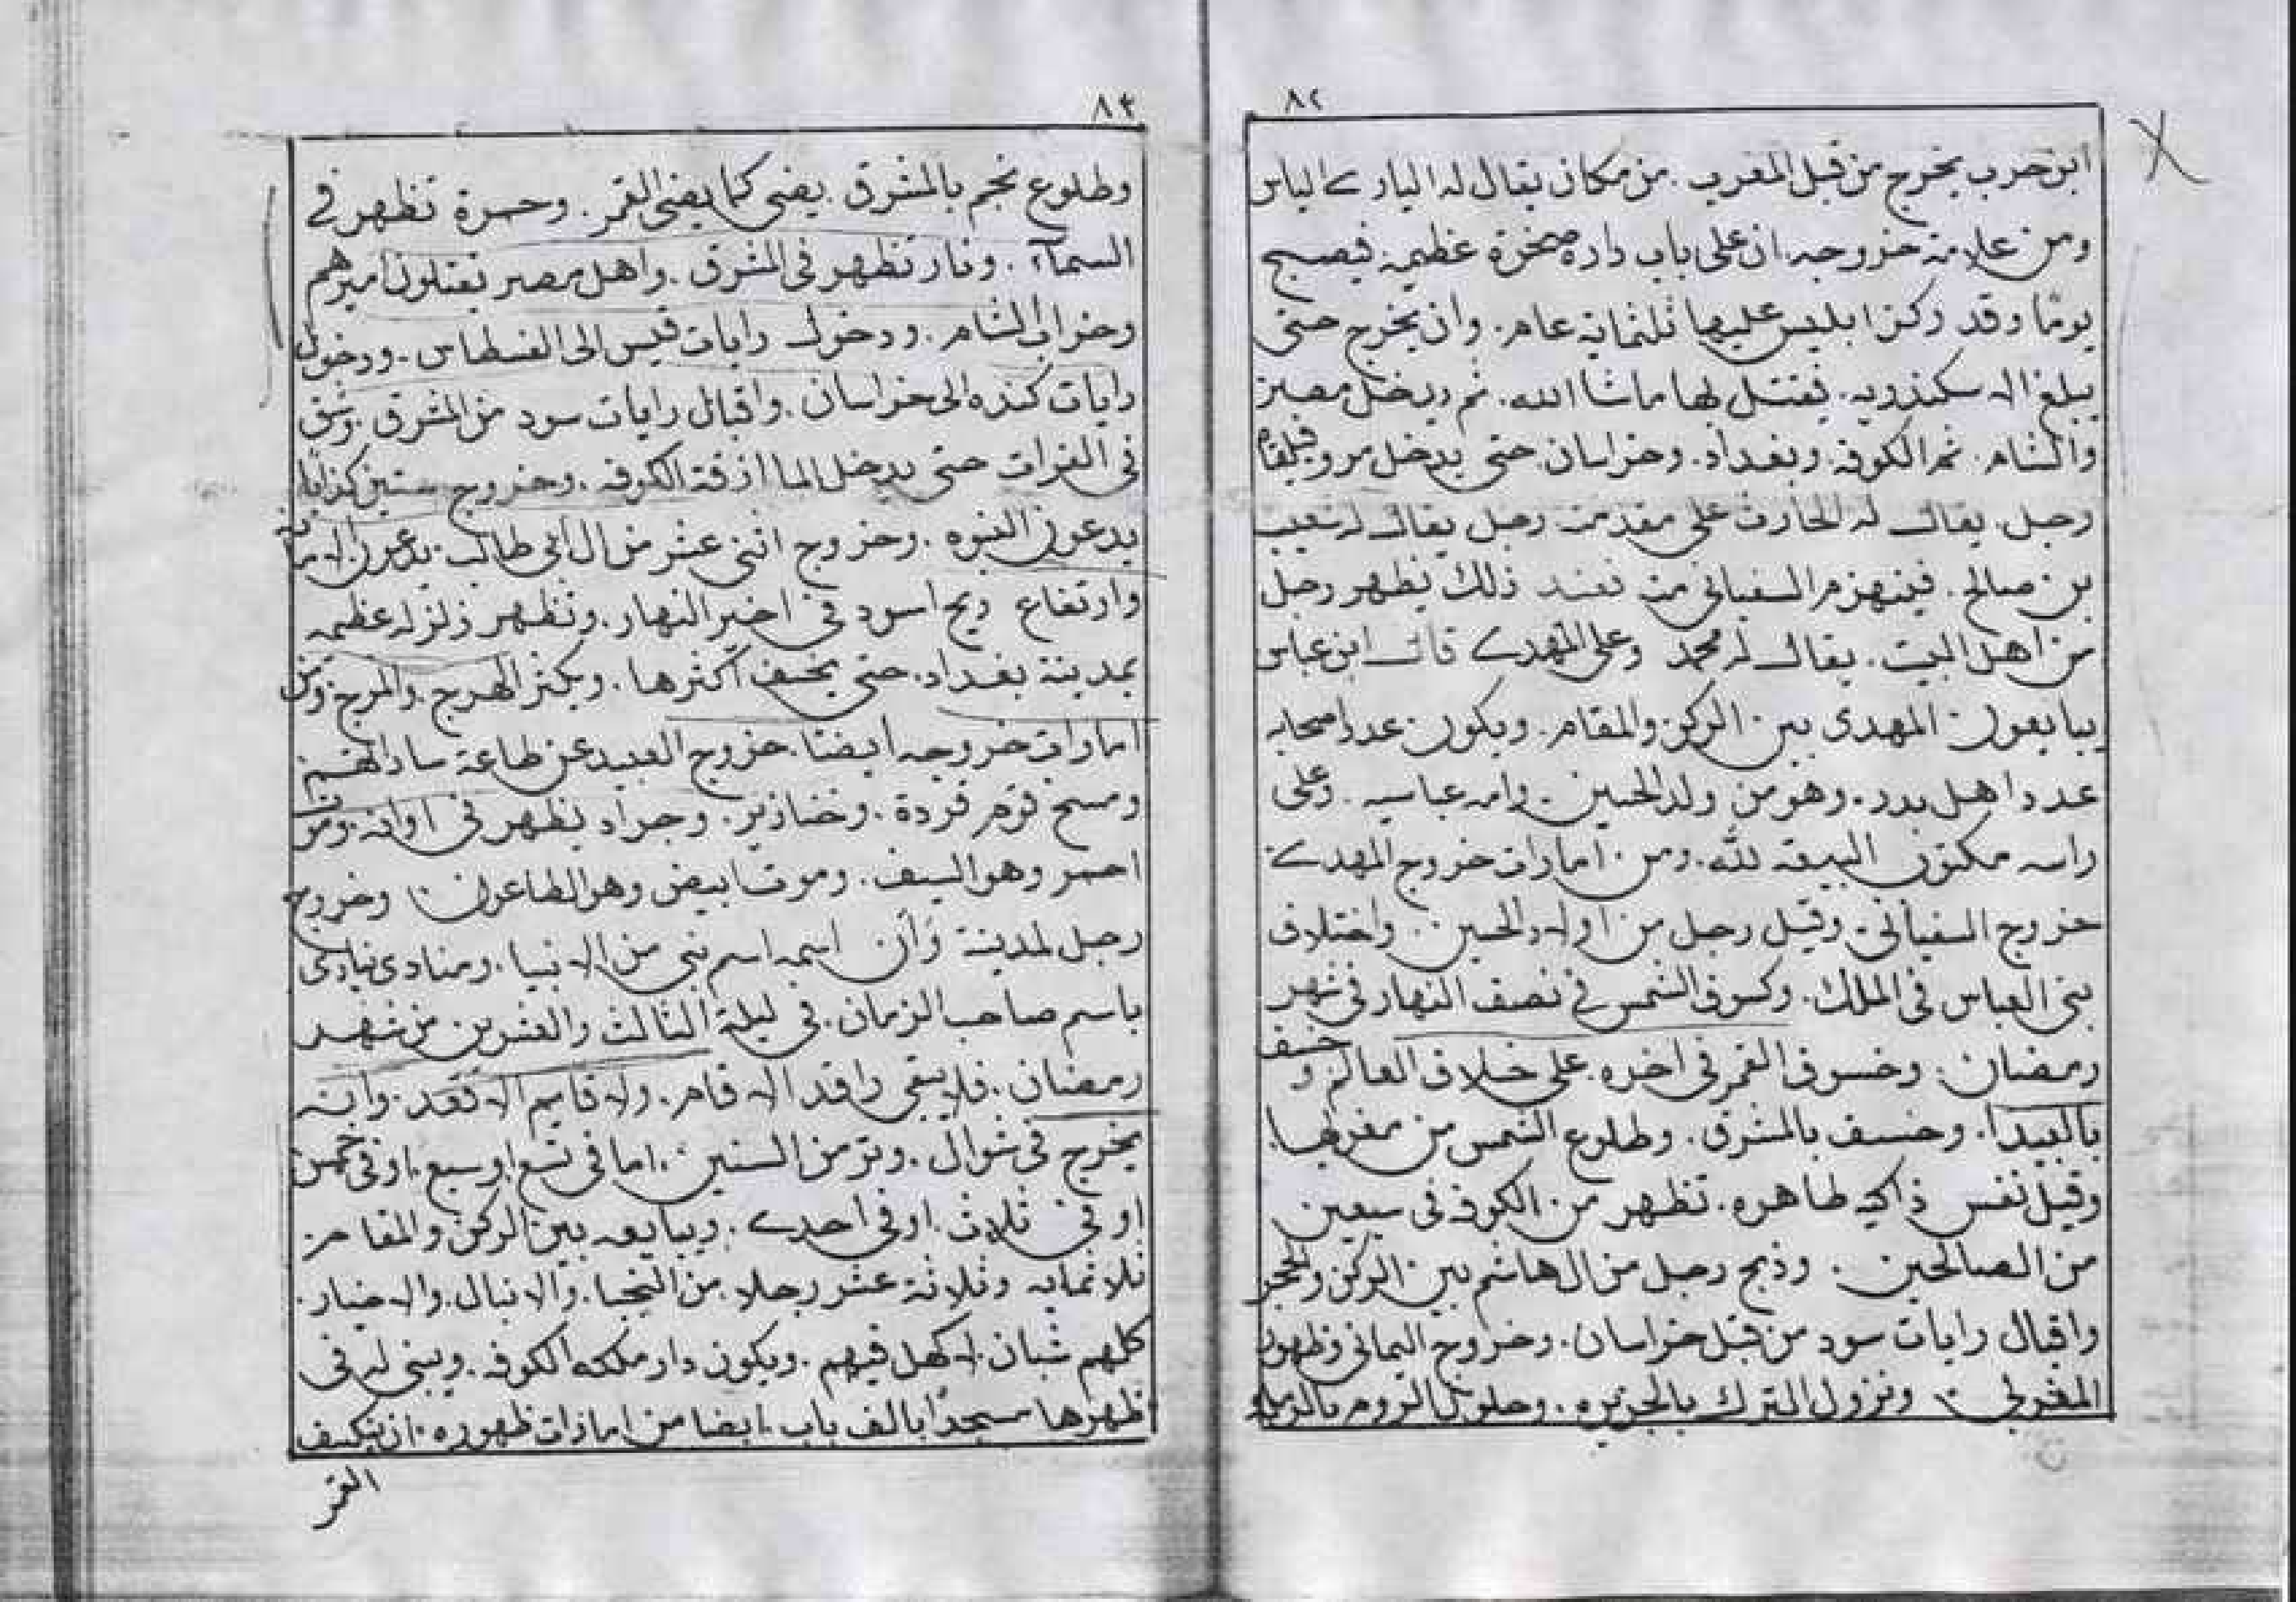 ٨٢
ابن حرب يخرج من قبل المغرب. من مكان يقال له اليارى الياس
ومن علامة خروجه. ان على باب داره صخرة عظيمه. فيصبح
يومًا وقد ركز ابليس عليها ثلثمائه عام. وان يخرج حتى
يبلغ الاسكندريه. يقتل بها ماشا الله. ثم يدخل مصر
والشام. ثم الكوفه. وبغداد. وخراسان. حتى يدخل مرو فيلقاه
رجل. يقال له الحارث على مقدمته رجل يقال له شعيب
بن صالح. فينهزم السفيانى منه فعند ذلك يظهر رجل
من اهل البيت. يقال له محمد وعلى المهدى قال ابن عباس
يبايعون المهدى بين الركن والمقام. ويكون عدد اصحابه
عدد اهل بدر. وهو من ولد الحسين. وامه عباسيه. وعلى
راسه مكتوب البيعة لله. ومن امارات خروج المهدى
خروج السفيانى. وقيل رجل من اولاد الحسين. واختلاف
بنى العباس فى الملك. وكسوف الشمس فى نصف النهار فى شهر
رمضان. وخسوف القمر فى اخره. على خلاف العالم و خسف
بالبيدا. وخسف بالمشرق. وطلوع الشمس من مغربها.
وقيل نفس ذاكيه طاهره. تظهر من الكوفه فى سبعين
من الصالحين. وذبح رجل من ال هاشم بين الركن والحجر
واقبال رايات سود من قبل خراسان. وخروج اليمانى وظهور
المغربى. ونزول الترك بالجزيره. وحلول الروم بالرمله
٨٣
وطلوع نجم بالمشرق. يضى كما يضى القمر. وحمرة تظهر فى
السمآء. ونار تظهر فى المشرق. واهل مصر يقتلون اميرهم
وخراب الشام. ودخول رايات قيس الى الفسطاس. ودخول
رايات كنده الى خراسان. واقبال رايات سود من المشرق. وشق
فى الفرات حتى يدخل الما ازقة الكوفه. وخروج ستين كذابا
يدعون النبوه. وخروج اثنى عشر من ال ابى طالب. يدعون الامامة
وارتفاع ريح اسود فى اخير النهار. وتظهر زلزله عظيمه
بمدينة بغداد. حتى يخسف اكثرها. ويكثر الهرج. والمرج. ومن
امارات خروجه ايضًا. خروج العبيد عن طاعة ساداتهم
ومسخ قوم قردة. وخنازير. وجراد يظهر فى اوانه. وموت
احمر وهو السيف. وموت ابيض وهو الطاعون. وخروج
رجل لمدينة وان اسمه اسم نبى من الانبيا. ومنادى ينادى
باسم صاحب الزمان. فى ليلة الثالث والعشرين من شهر
رمضان. فلا يبقى راقد الا قام. ولا قايم الا قعد. وانه
يخرج فى شوال. وتر من السنين. اما فى تسع او سبع. او فى خمس
او فى ثلاث. او فى احدى. ويبايعه بين الركن والمقام.
ثلاثمايه وثلاثة عشر رجلا. من النجبا. والانبال. والاخيار.
كلهم شبان لا كهل فيهم. ويكون دار ملكه الكوفه. ويبنى له فى
ظهرها مسجدًا بالف باب. ايضا من امارات ظهوره. ان ينكسف
القمر